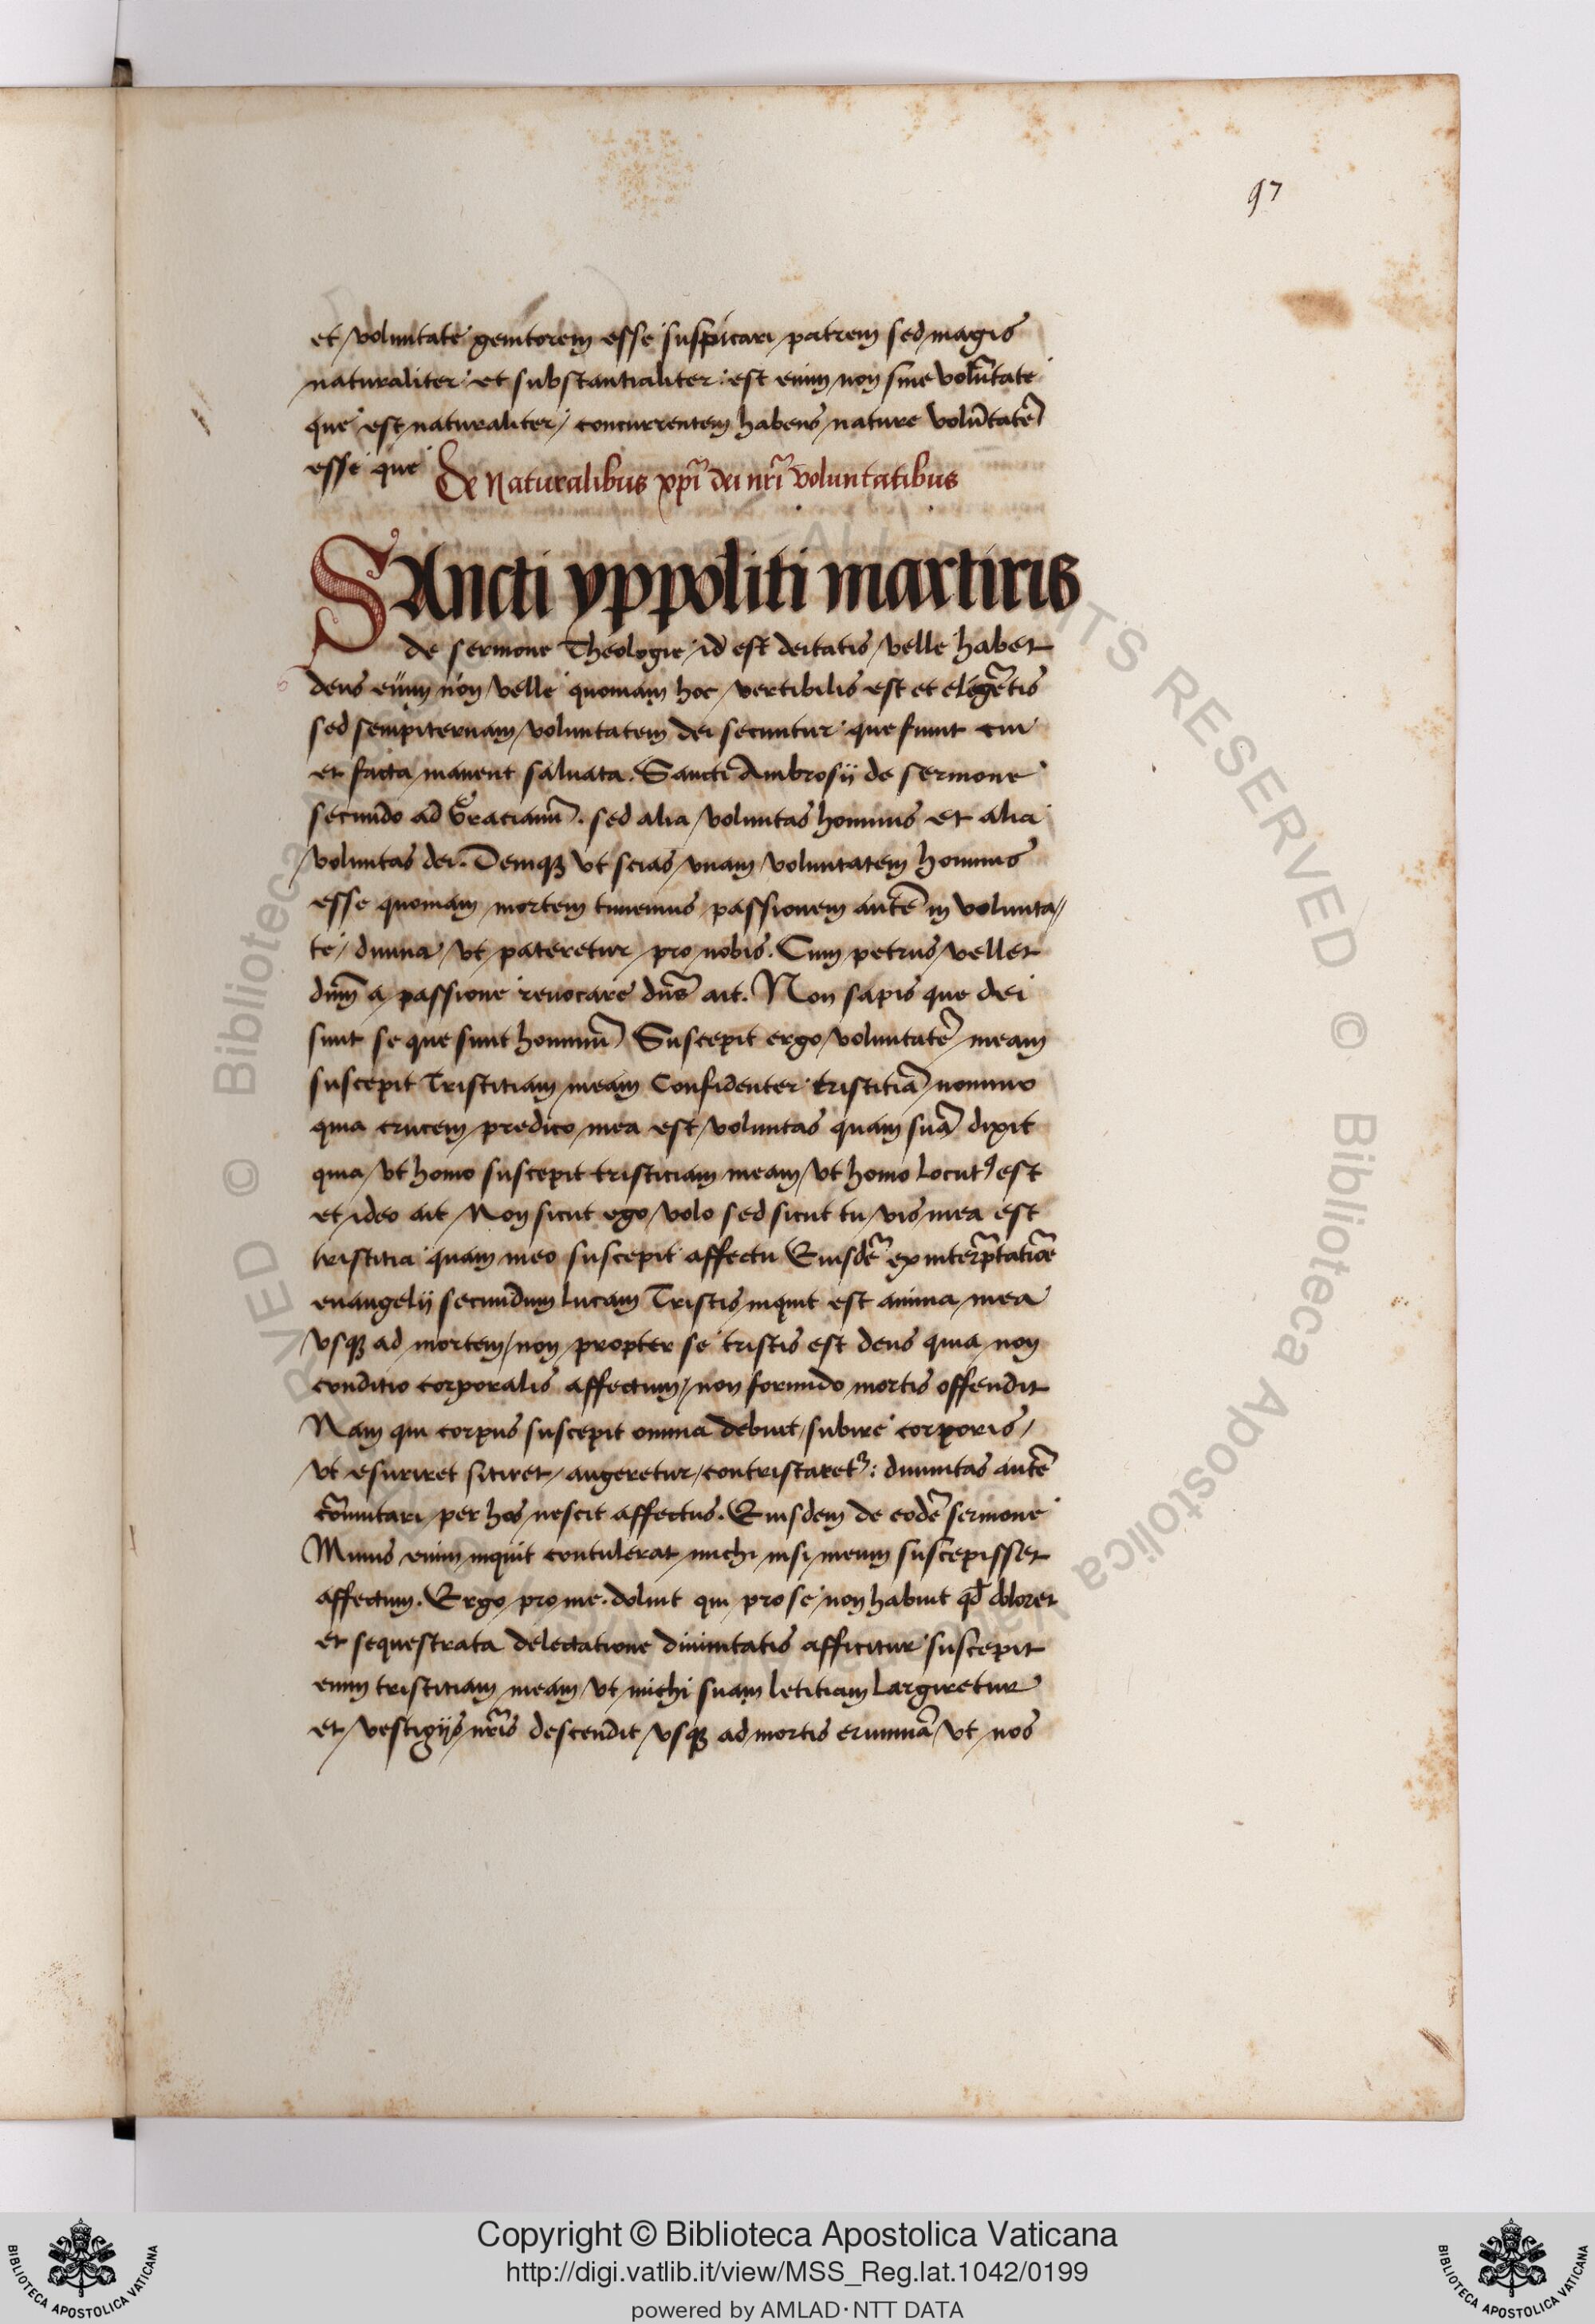 97
et voluntate genitorem esse suspicari patrem sed magis
naturaliter et substantialiter : est enim non sine volūtate
que est naturaliter / concurrentem habens nature volūtatē
esse que
De Naturalibus xpī dei nrī voluntatibus
SAncti yppoliti martiris
de sermone Theologie id est deitatis velle habet
deus enim non velle quoniam hoc vertibilis est et eligētis
sed sempiternam voluntatem dei secuntur que fiunt cui
et facta manent saluata. Sancti Ambrosij de sermone
secundo ad Gracianū. sed alia voluntas hominis et alia
voluntas dei. Deniqꝫ vt scias vnam voluntatem hominis
esse quoniam mortem timemus passionem autē in volunta//
te / diuina vt pateretur pro nobis. Cum petrus vellet
dnm̄ a passione reuocare dns̄ ait. Non sapis que dei
sunt se que sunt hominū Suscepit ergo voluntatē meam
suscepit Tristitiam meam Confidenter tristitiā nomino
quia crucem predico mea est voluntas quam suā dixit
quia vt homo suscepit tristiciam meam vt homo locutꝰ est
et ideo ait Non sicut ego volo sed sicut tu vis mea est
tristitia quam meo suscepit affectu Eiusdē ex interp̄tatiōe
euangelij secundum lucam Tristis inquit est anima mea
vsqꝫ ad mortem / non propter se tristis est deus quia non
conditio corporalis affectum / non formido mortis offendit
Nam qui corpus suscepit omnia debuit subire corporis /
vt esuriret sitiret angeretur contristaretꝛ : diuinitas autē
cōmutari per hos nescit affectus. Eiusdem de eodē sermone
Minus enim inquit contulerat michi nisi meum suscepisset
affectum. Ergo pro me. doluit qui pro se non habuit qd̄ doloret
et sequestrata delectatione diuinitatis afficitur suscepit
enim tristitiam meam vt michi suam letitiam largiretur
et vestigijs nrīs descendit vsqꝫ ad mortis erumnā vt nos
Copyright © Biblioteca Apostolica Vaticana
http://digi.vatlib.it/view/MSS_Reg.lat.1042/0199
powered by AMLAD·NTT DATA
BIBLIOTECA APOSTOLICA VATICANA
BIBLIOTECA APOSTOLICA VATICANA